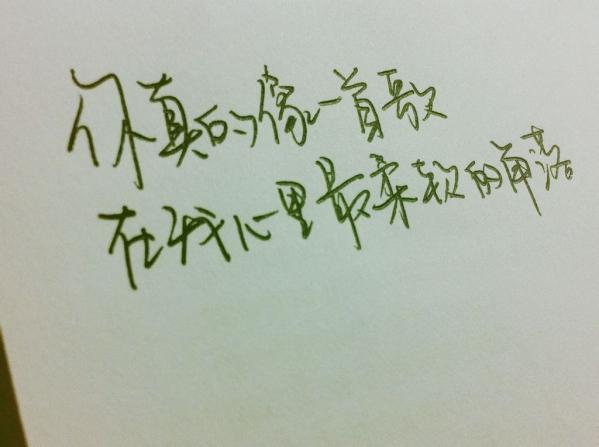 你真的像一首歌
在我心里最柔软的角落